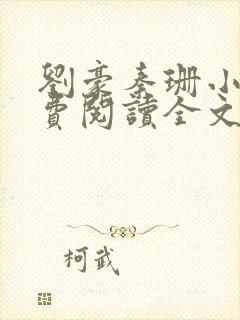 劉豪秦珊小
費閱讀全文
柯武